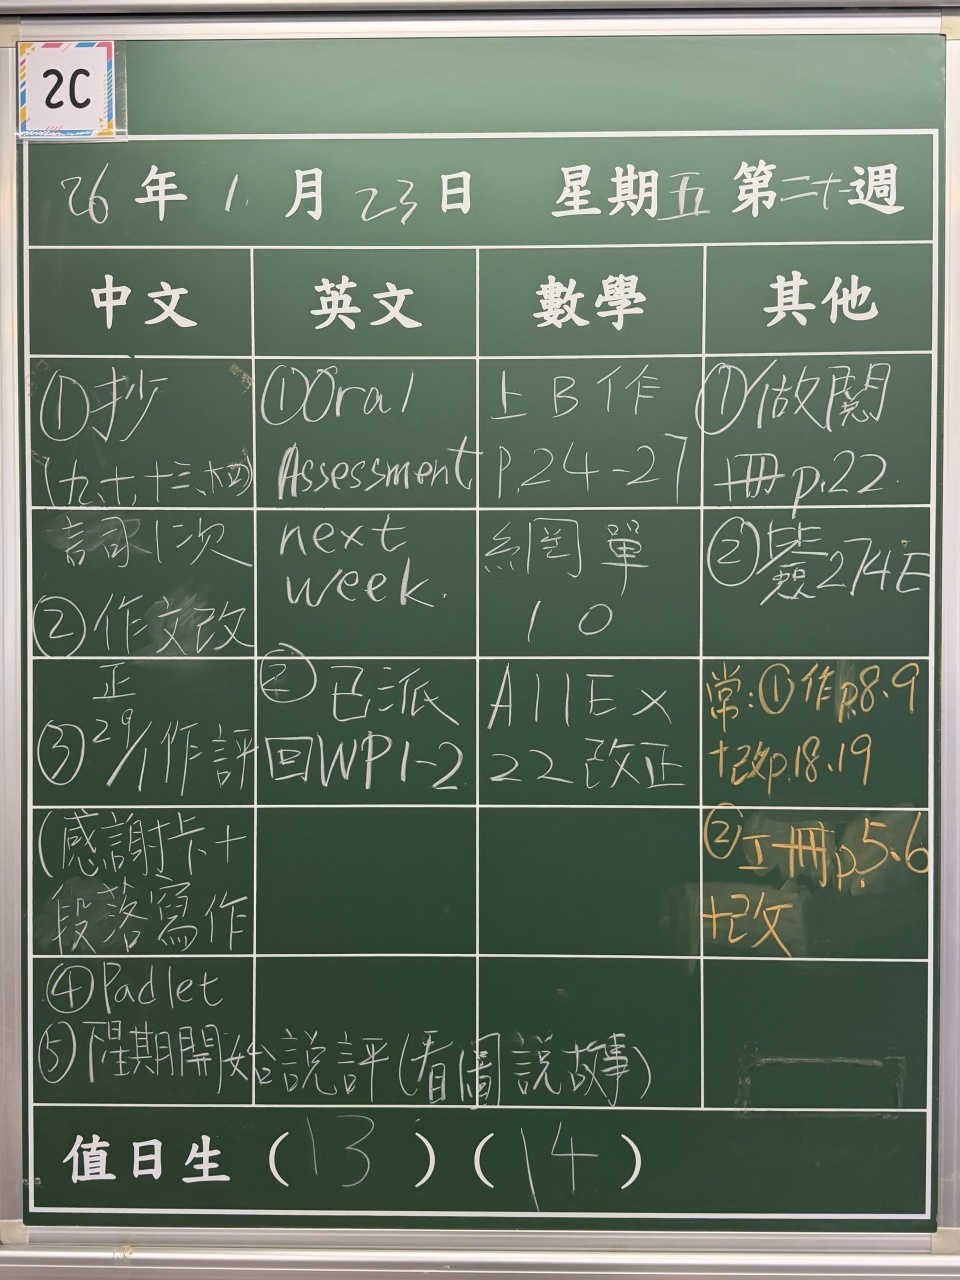 2C
26年1月23日 星期五 第二十週
中文
英文
數學
其他
①抄
(九、十、十三、十四)
詞1次
②作文改
正
③29/1作評
(感謝卡+
段落寫作
④Padlet
⑤下星期開始說評(看圖說故事)
①Oral
Assessment
next
week.
②已派
回WP1-2
上B作
P.24-27
網單
10
A11Ex
22改正
①做閱
冊p.22
②簽274E
常:①作p.8.9
+改p.18.19
②工冊p.5.6
+改
值日生(13)(14)